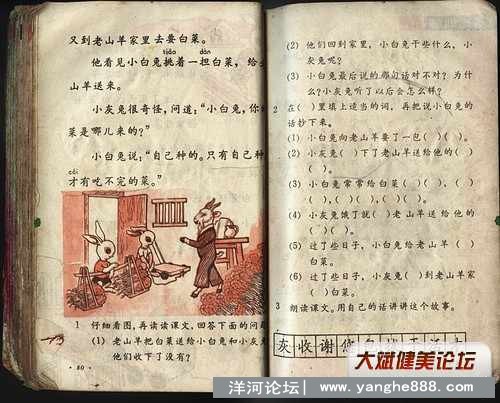 又到老山羊家里去要白菜。
tiāo dàn
他看见小白兔挑着一担白菜，给
山羊送来。
小灰兔很奇怪，问道："小白兔，你
菜是哪儿来的？"
小白兔说："自己种的。只有自己
cái
才有吃不完的菜。"
1 仔细看图，再读读课文，回答下面的问
(1) 老山羊把白菜送给小白兔和小灰
他们收下了没有？
·80·
(2) 他们回到家里，小白兔干些什么，小
灰兔呢？
(3) 小白兔最后说的那句话对不对？为什
么？小灰兔听了以后会怎么样？
2 在( )里填上适当的词，再把说小白兔的
话抄下来。
(1) 小白兔向老山羊要了一包( )( )。
(2) 小灰兔( )下了老山羊送给他的( )
( )。
(3) 小白兔常常给白菜( )( )，( )
( )，( )( )，( )( )。
(4) 小灰兔饿了就( )老山羊送给他的
( )( )。
(5) 过了些日子，小白兔给老山羊( )
( )白菜。
(6) 过了些日子，小灰兔( )到老山羊家
( )白菜。
3 朗读课文。用自己的话讲讲这个故事。
灰 收 谢
大斌健美论坛
洋河论坛| www.yanghe888.com